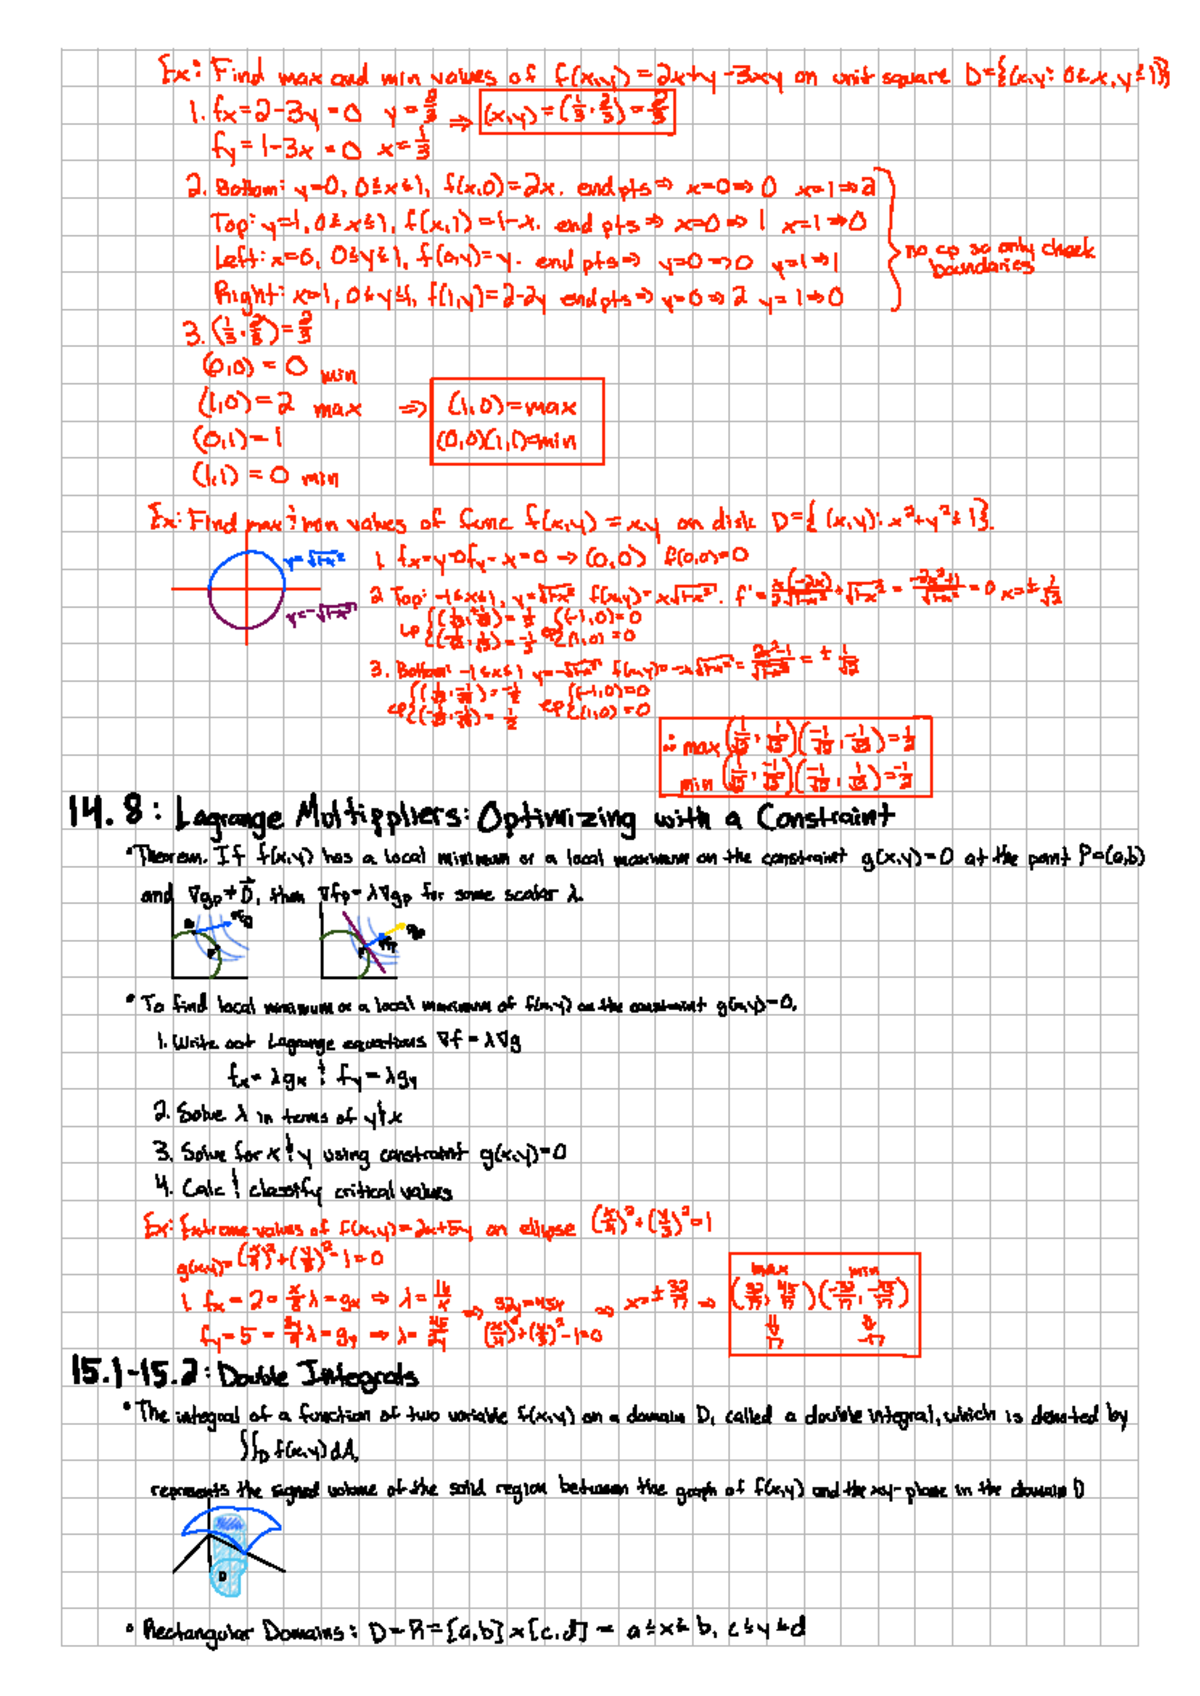 Ex: Find max and min values of f(x,y) = 2x+y-3xy on unit square D={(x,y: 0≤x,y≤1)}
1. fx=2-3y=0 y=2/3 ⇒ (x,y)=(1/3, 2/3)=2/3
fy=1-3x=0 x=1/3
2. Bottom: y=0, 0≤x≤1, f(x,0)=2x. end pts ⇒ x=0⇒0 x=1⇒2
Top: y=1, 0≤x≤1, f(x,1)=1-x. end pts ⇒ x=0⇒1 x=1⇒0
Left: x=0, 0≤y≤1, f(0,y)=y. end pts ⇒ y=0⇒0 y=1⇒1
Right: x=1, 0≤y≤1, f(1,y)=2-2y end pts ⇒ y=0⇒2 y=1⇒0
no cp so only check
boundaries
3. (1/3, 2/3)=2/3
(0,0) = 0 min
(1,0) = 2 max ⇒ (1,0)=max
(0,1)=1 (0,0)(1,1)=min
(1,1) = 0 min
Ex: Find max & min values of func f(x,y) = xy on disk D={(x,y): x²+y²≤1}.
y=√1-x²
y=-√1-x²
1. fx=y=0 fy=x=0 → (0,0) f(0,0)=0
2. Top: -1≤x≤1, y=√1-x² f(x,y)=x√1-x². f'=x(-2x)/2√1-x² + √1-x² = -2x²+1/√1-x² = 0 x=±1/√2
cp{(1/√2, 1/√2)=1/2 ep{(-1,0)=0
(-1/√2, 1/√2)=-1/2 (1,0)=0
3. Bottom: -1≤x≤1 y=-√1-x² f(x,y)=-x√1-x² = 2x²-1/√1-x² = ±1/√2
cp{(1/√2, -1/√2)=-1/2 ep{(-1,0)=0
(-1/√2, -1/√2)=1/2 (1,0)=0
∴ max (1/√2, 1/√2)(-1/√2, -1/√2)=1/2
min (1/√2, -1/√2)(-1/√2, 1/√2)=-1/2
14.8: Lagrange Multippliers: Optimizing with a Constraint
• Theorem. If f(x,y) has a local minimum or a local maximum on the constraint g(x,y)=0 at the point P=(a,b)
and ∇gp≠0, then ∇fp=λ∇gp for some scalar λ.
• To find local minimum or a local maximum of f(x,y) on the constraint g(x,y)=0,
1. Write out Lagrange equations ∇f=λ∇g
fx=λgx & fy=λgy
2. Solve λ in terms of y & x
3. Solve for x & y using constraint g(x,y)=0
4. Calc & classify critical values
Ex: Extreme values of f(x,y)=2x+5y on ellipse (x/4)²+(y/3)²=1
g(x,y)=(x/4)²+(y/3)²-1=0
1. fx=2=x/8 λ=gx ⇒ λ=16/x ⇒ 32y=45x ⇒ x=±32/17 ⇒ max (32/17, 45/17) min (-32/17, -45/17)
fy=5=2y/9 λ=gy ⇒ λ=45/2y (x/4)²+(y/3)²-1=0 17 -17
15.1-15.2: Double Integrals
• The integral of a function of two variable f(x,y) on a domain D, called a double integral, which is denoted by
∫∫D f(x,y)dA,
represents the signed volume of the solid region between the graph of f(x,y) and the xy-plane in the domain D
D
• Rectangular Domains: D=R=[a,b]×[c,d] = a≤x≤b, c≤y≤d